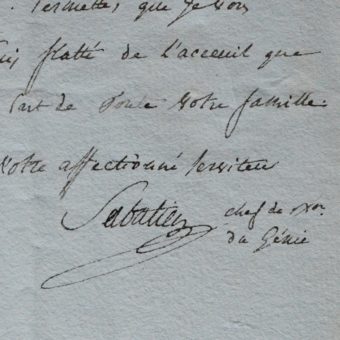 Permettes, que je vous
suis flatté de l'acceuil que
part de toute votre famille.
votre affectionné serviteur
Sabatier chef de Bon.
du Génie